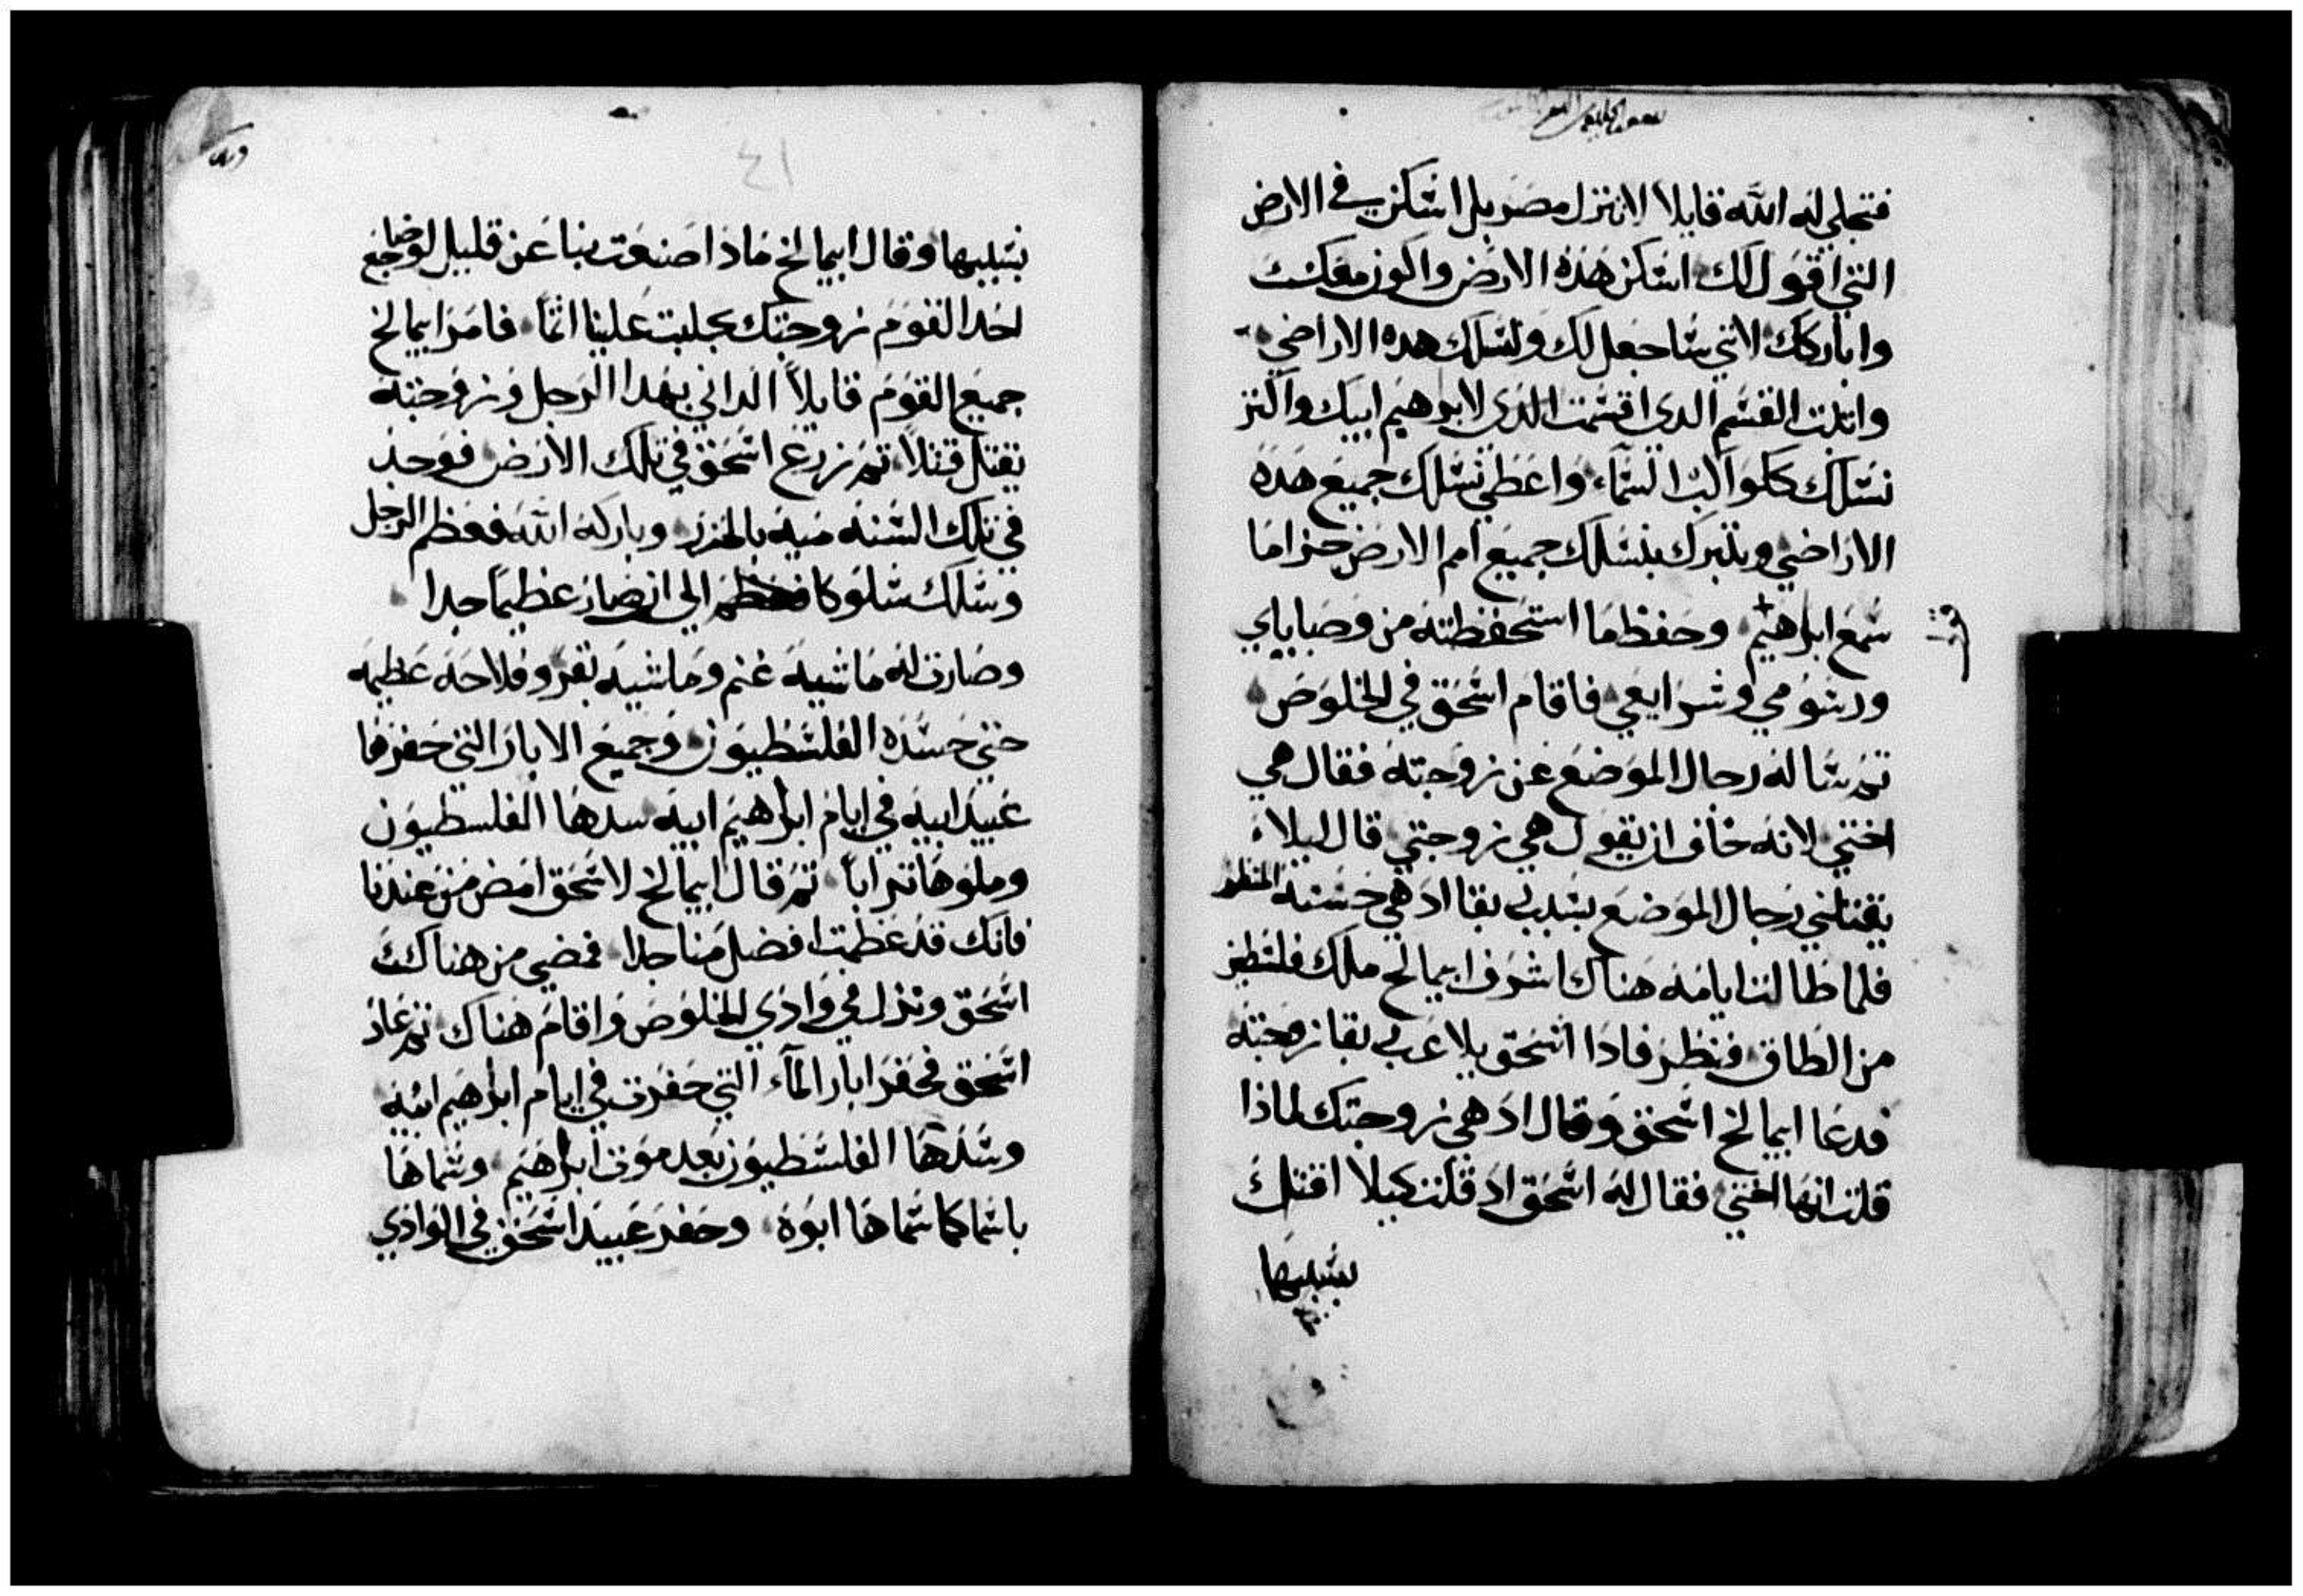 فتجلي له الله قايلا لا تنزل مصر بل اسكن في الارض
التي اقول لك اسكن هذه الارض واكون معك
واباركك لاني ساجعل لك ولنسلك هده الاراضي
واثبت القسم الدي اقسمت الذي لابرهيم ابيك واكثر
نسلك كلواكب السماء واعطي نسلك جميع هذه
الاراضي ويتبرك بنسلك جميع امم الارض جزا ما
سمع ابرهيم وحفظ ما استحفظته من وصاياي
ورسومي وشرايعي فاقام اسحق في الخلوص
تم ساله رجال الموضع عن زوجته فقال هي
اختي لانه خاف ان يقول هي زوجتي قال ليلا
يقتلني رجال الموضع بسبب بقا اد هي حسنة المنظر
فلما طالت ايامه هناك اشرف ابيمالخ ملك فلسطين
من الطاق فنظر فاذا اسحق يلاعب بقا زوجته
فدعا ابيمالخ اسحق وقال اد هي زوجتك لماذا
قلت انها اختي فقال له اسحق اد قلت كيلا اقتل
بسببها
٤١
بسببها وقال ابيمالخ ماذا صنعت بنا عن قليل لوضاجع
احد القوم زوجتك جلبت علينا اثما فامر ابيمالخ
جميع القوم قايلا الداني بهدا الرجل وزوجته
يقتل قتلا تم زرع اسحق في تلك الارض فوجد
في تلك السنه ميه بالحزر وباركه الله فعظم الرجل
وسلك سلوكا الي ان صار عظيما جدا
وصارت له ماشية غنم وماشية بقر وفلاحه عظيمه
حتي حسده الفلسطيون وجميع الابار التي حفرها
عبيد ابيه في ايام ابرهيم ابيه سدها الفلسطيون
وملوها ترابا تم قال ابيمالخ لاسحق امض من عندنا
فانك قد عظمت افضل منا جدا فمضي من هناك
اسحق ونزل في وادي الخلوص واقام هناك تم عاد
اسحق فحفر ابار الماء التي حفرت في ايام ابرهيم ابيه
وسدها الفلسطيون بعد موت ابرهيم وسماها
باسما كما سماها ابوه وحفر عبيد اسحق في الوادي